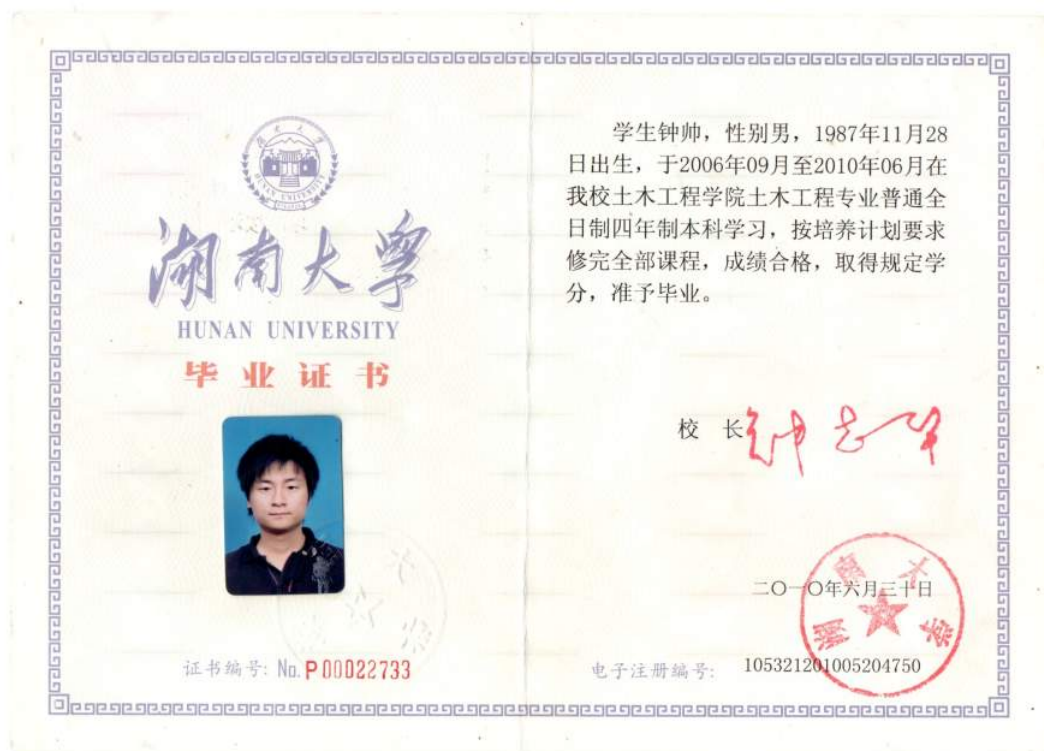 湖南大学
HUNAN UNIVERSITY
湖南大学
HUNAN UNIVERSITY
毕业证书
证书编号: No. P00022733
学生钟帅，性别男，1987年11月28
日出生，于2006年09月至2010年06月在
我校土木工程学院土木工程专业普通全
日制四年制本科学习，按培养计划要求
修完全部课程，成绩合格，取得规定学
分，准予毕业。
校 长 钟志华
二〇一〇年六月三十日
湖南大学
电子注册编号: 105321201005204750